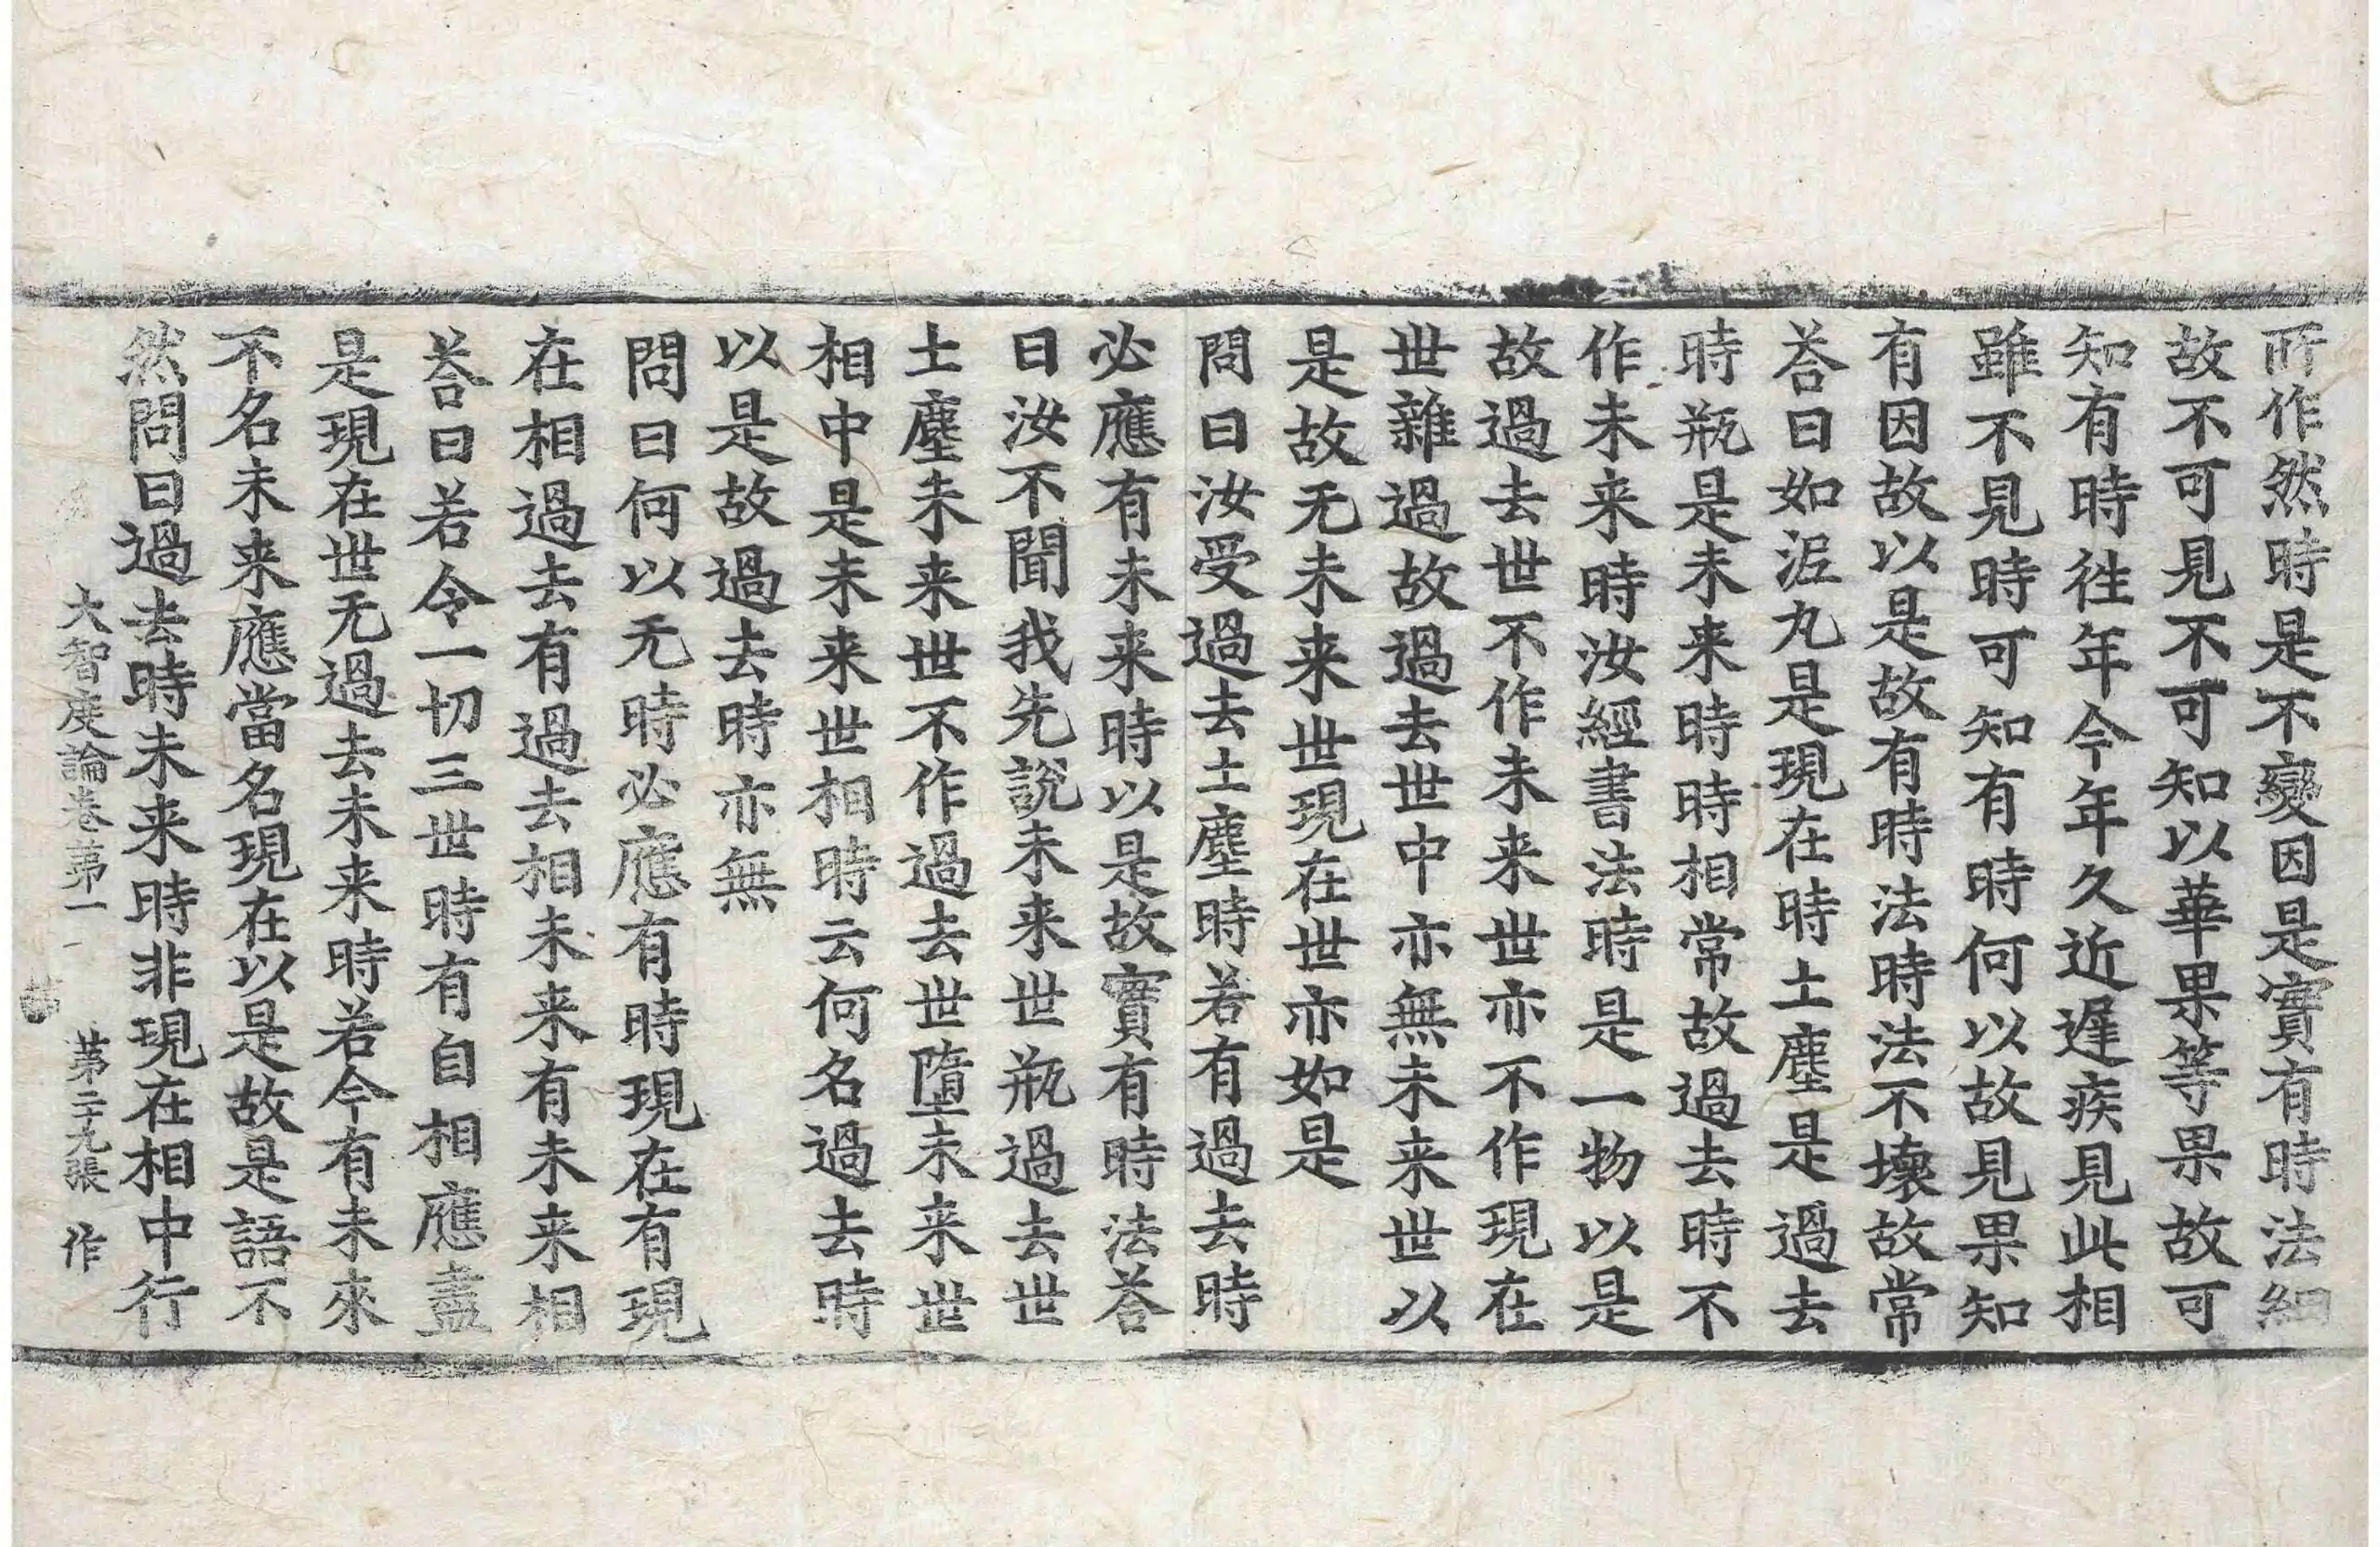 所作然時是不變因是實有時法細
故不可見不可知以華果等果故可
知有時徃年今年久近遲疾見此相
雖不見時可知有時何以故見果知
有因故以是故有時法時法不壞故常
荅曰如泥丸是現在時土塵是過去
時瓶是未来時時相常故過去時不
作未来時汝經書法時是一物以是
故過去世不作未来世亦不作現在
世雜過故過去世中亦無未来世以
是故无未来世現在世亦如是
問曰汝受過去土塵時若有過去時
必應有未来時以是故實有時法荅
曰汝不聞我先說未来世瓶過去世
土塵未来世不作過去世墮未来世
相中是未来世相時云何名過去時
以是故過去時亦無
問曰何以无時必應有時現在有現
在相過去有過去相未来有未来相
荅曰若令一切三世時有自相應盡
是現在世无過去未来時若今有未來
不名未来應當名現在以是故是語不
然問曰過去時未来時非現在相中行
大智度論卷第一 第二十九張 作